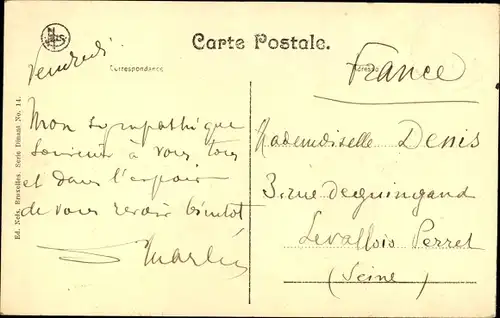 Carte Postale.
Correspondance
Adresse
Vendredi
France
Mon sympathique
souvenir à vous tous
et dans l'espoir
de vous revoir bientôt
Mademoiselle Denis
3. rue deguingand
Levallois Perret
(Seine)
Ed. Nels, Bruxelles. Serie Dinant No. 14.